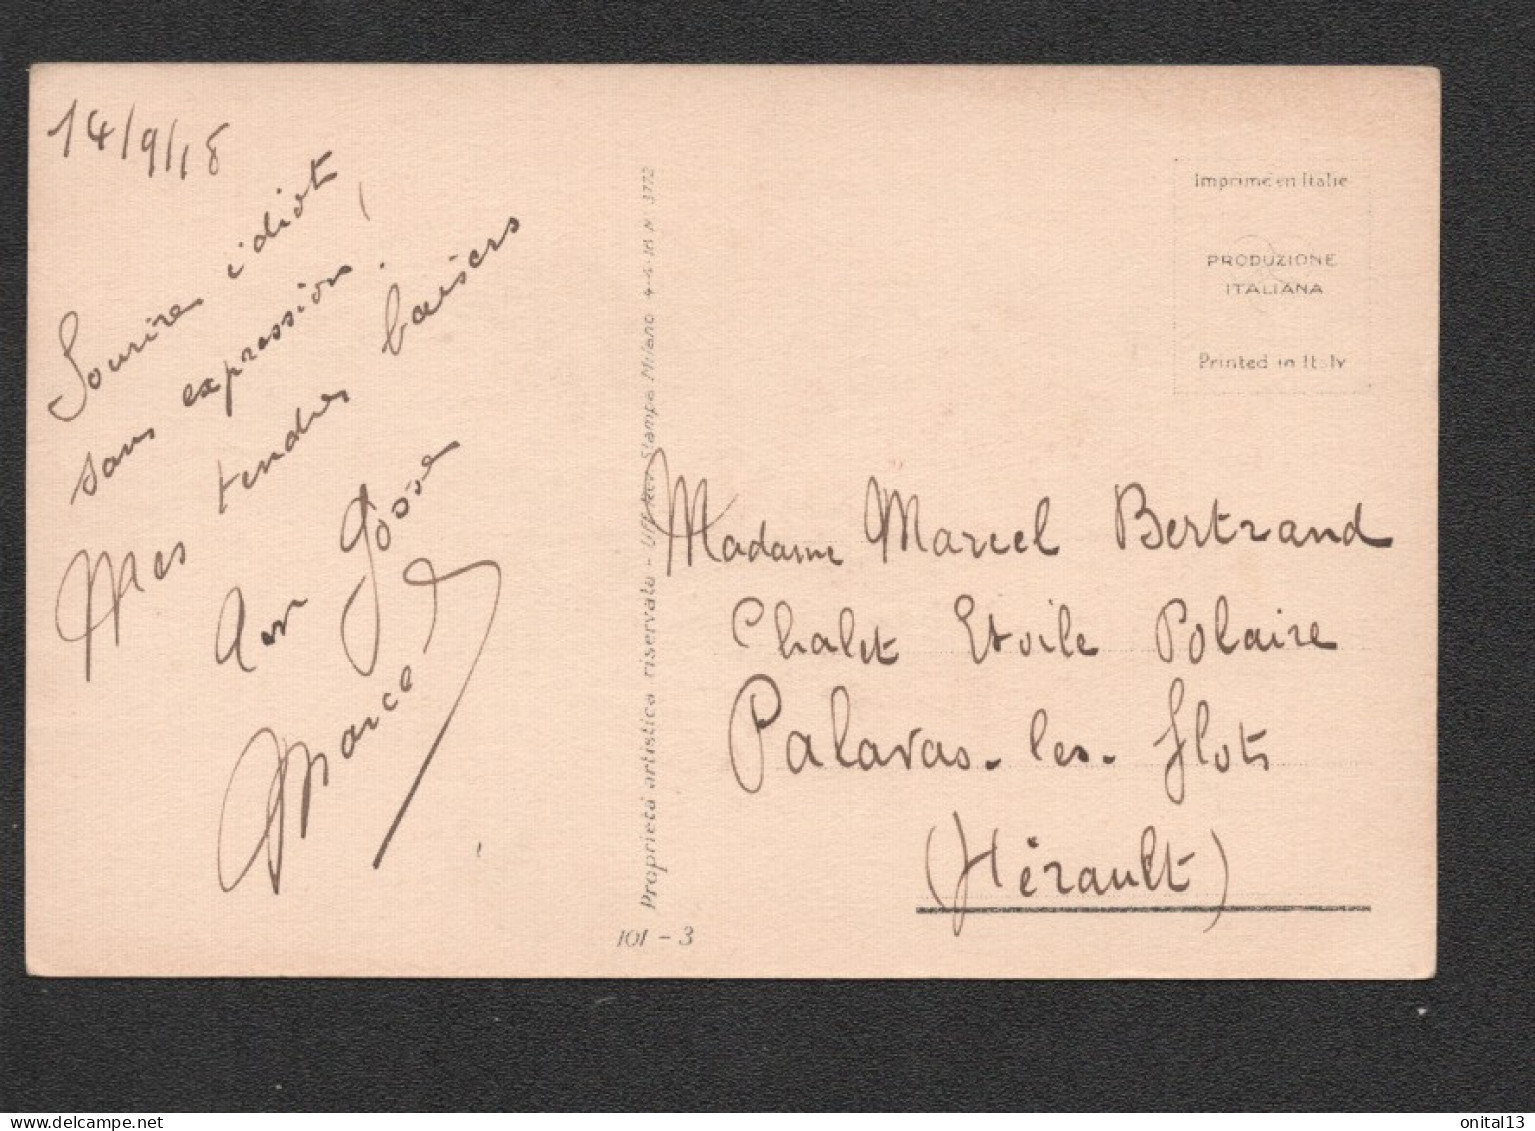 14/9/18
Sourire idiot,
sans expression.
Mes tendres baisers
aux gosses
Marcel
Proprietà artistica riservata - Uff. Rev. Stampa Milano 4-6-18 N° 3772
101 - 3
Imprimé en Italie
PRODUZIONE
ITALIANA
Printed in Italy
Madame Marcel Bertrand
Chalet Etoile Polaire
Palavas-les-flots
(Hérault)
delcampe.net
onital13